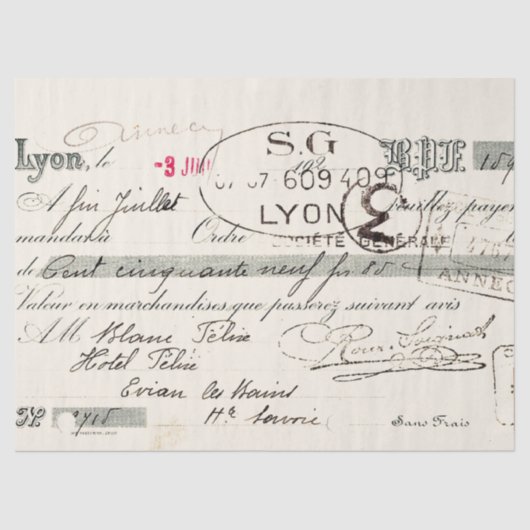 Annecy
Lyon, le -3 JUI 192 B.P.F. 159
S.G
07 07 609 409
LYON
3
A fin Juillet Veuillez payer
mandat à Ordre SOCIÉTÉ GÉNÉRALE
476
ANNEC
de Cent cinquante neuf frs 80
Valeur en marchandises, que passerez suivant avis
A M Blanc Félix
Hotel Félix
Evian les Bains
Hte Savoie
No 2715 Sans Frais